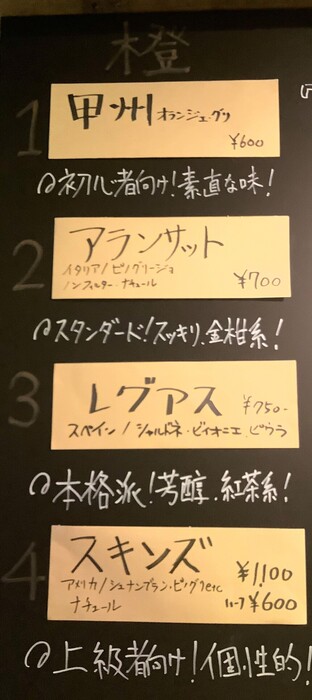 橙
1 甲州 オランジュ・グリ
¥600
初心者向け!素直な味!
2 アランサット
イタリア/ピノグリージョ
ノンフィルター・ナチュール ¥700
スタンダード!スッキリ、金柑系!
3 レグアス ¥750-
スペイン/シャルドネ・ビィオニエ、ビウラ
本格派!芳醇、紅茶系!
4 スキンズ ¥1,100
アメリカ/シュナンブラン・ピノグリetc
ナチュール ハーフ¥600
上級者向け!個性的!